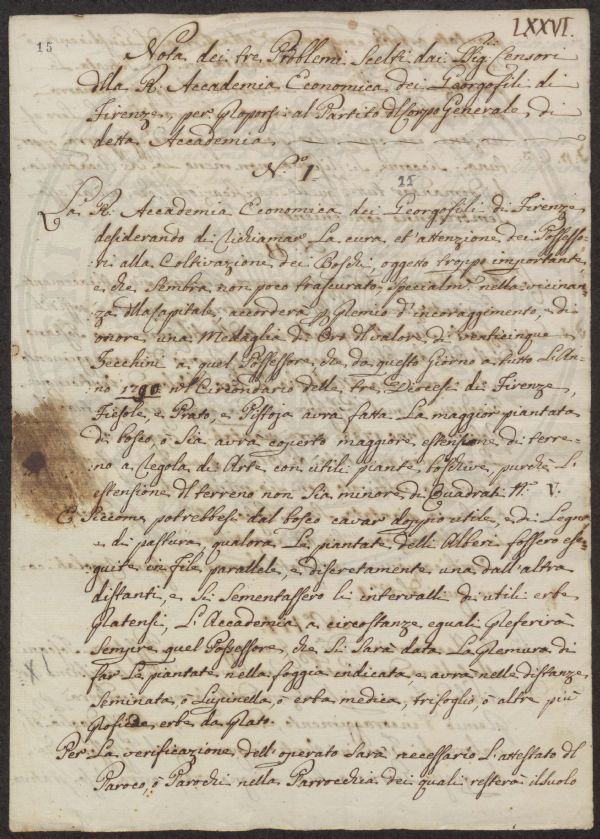 LXXVI.
15
Nota dei tre Problemi Scelti dai SSig. Censori
dlla R. Accademia Economica dei Georgofili di
Firenze, per Proporsi al Partito dl Corpo Generale di
detta Accademia
N.º 1.
15
La R. Accademia Economica dei Georgofili di Firenze
desiderando di richiamar La cura et attenzione dei Possesso=
ri alla Coltivazione dei Boschi, oggetto troppo importante,
e che Sembra non poco trascurato, Specialm.te nella vicinan=
za dlla Capitale, accorderà p Premio d'incoraggimento, e di
onore una Medaglia di Oro dl valore di venticinque
Zecchini a quel Possessore, che da questo Giorno a tutto L'An=
no 1790. nel Circondario delle tre Diocesi di Firenze,
Fiesole, e Prato, e Pistoja avrà fatta La maggior piantata
di bosco, o Sia avrà coperto maggiore estensione di terre=
no a regola di Arte con utili piante boschive, purchè L'
estensione dl terreno non Sia minore di Quadrati N.º V.
E Siccome potrebbesi dal bosco cavar doppio utile, e di Legna
e di pastura, qualora Le piantate delli Alberi fossero ese=
guite in file parallele, e discretamente una dall'altra
distanti, e Si Sementassero li intervalli di utili erbe
Pratensi, L'Accademia a circostanze eguali Preferirà
Sempre quel Possessore, che Si Sarà data La Premura di
far Le piantate nella foggia indicata, e avrà nelle distanze
Seminata, o Lupinella, o erba medica, trifoglio o altre più
Proficue erbe da Prato.
Per La verificazione dell'operato Sarà necessario L'attestato dl
Paroco, o Parochi nella Parrocchia dei quali resterà il Suolo